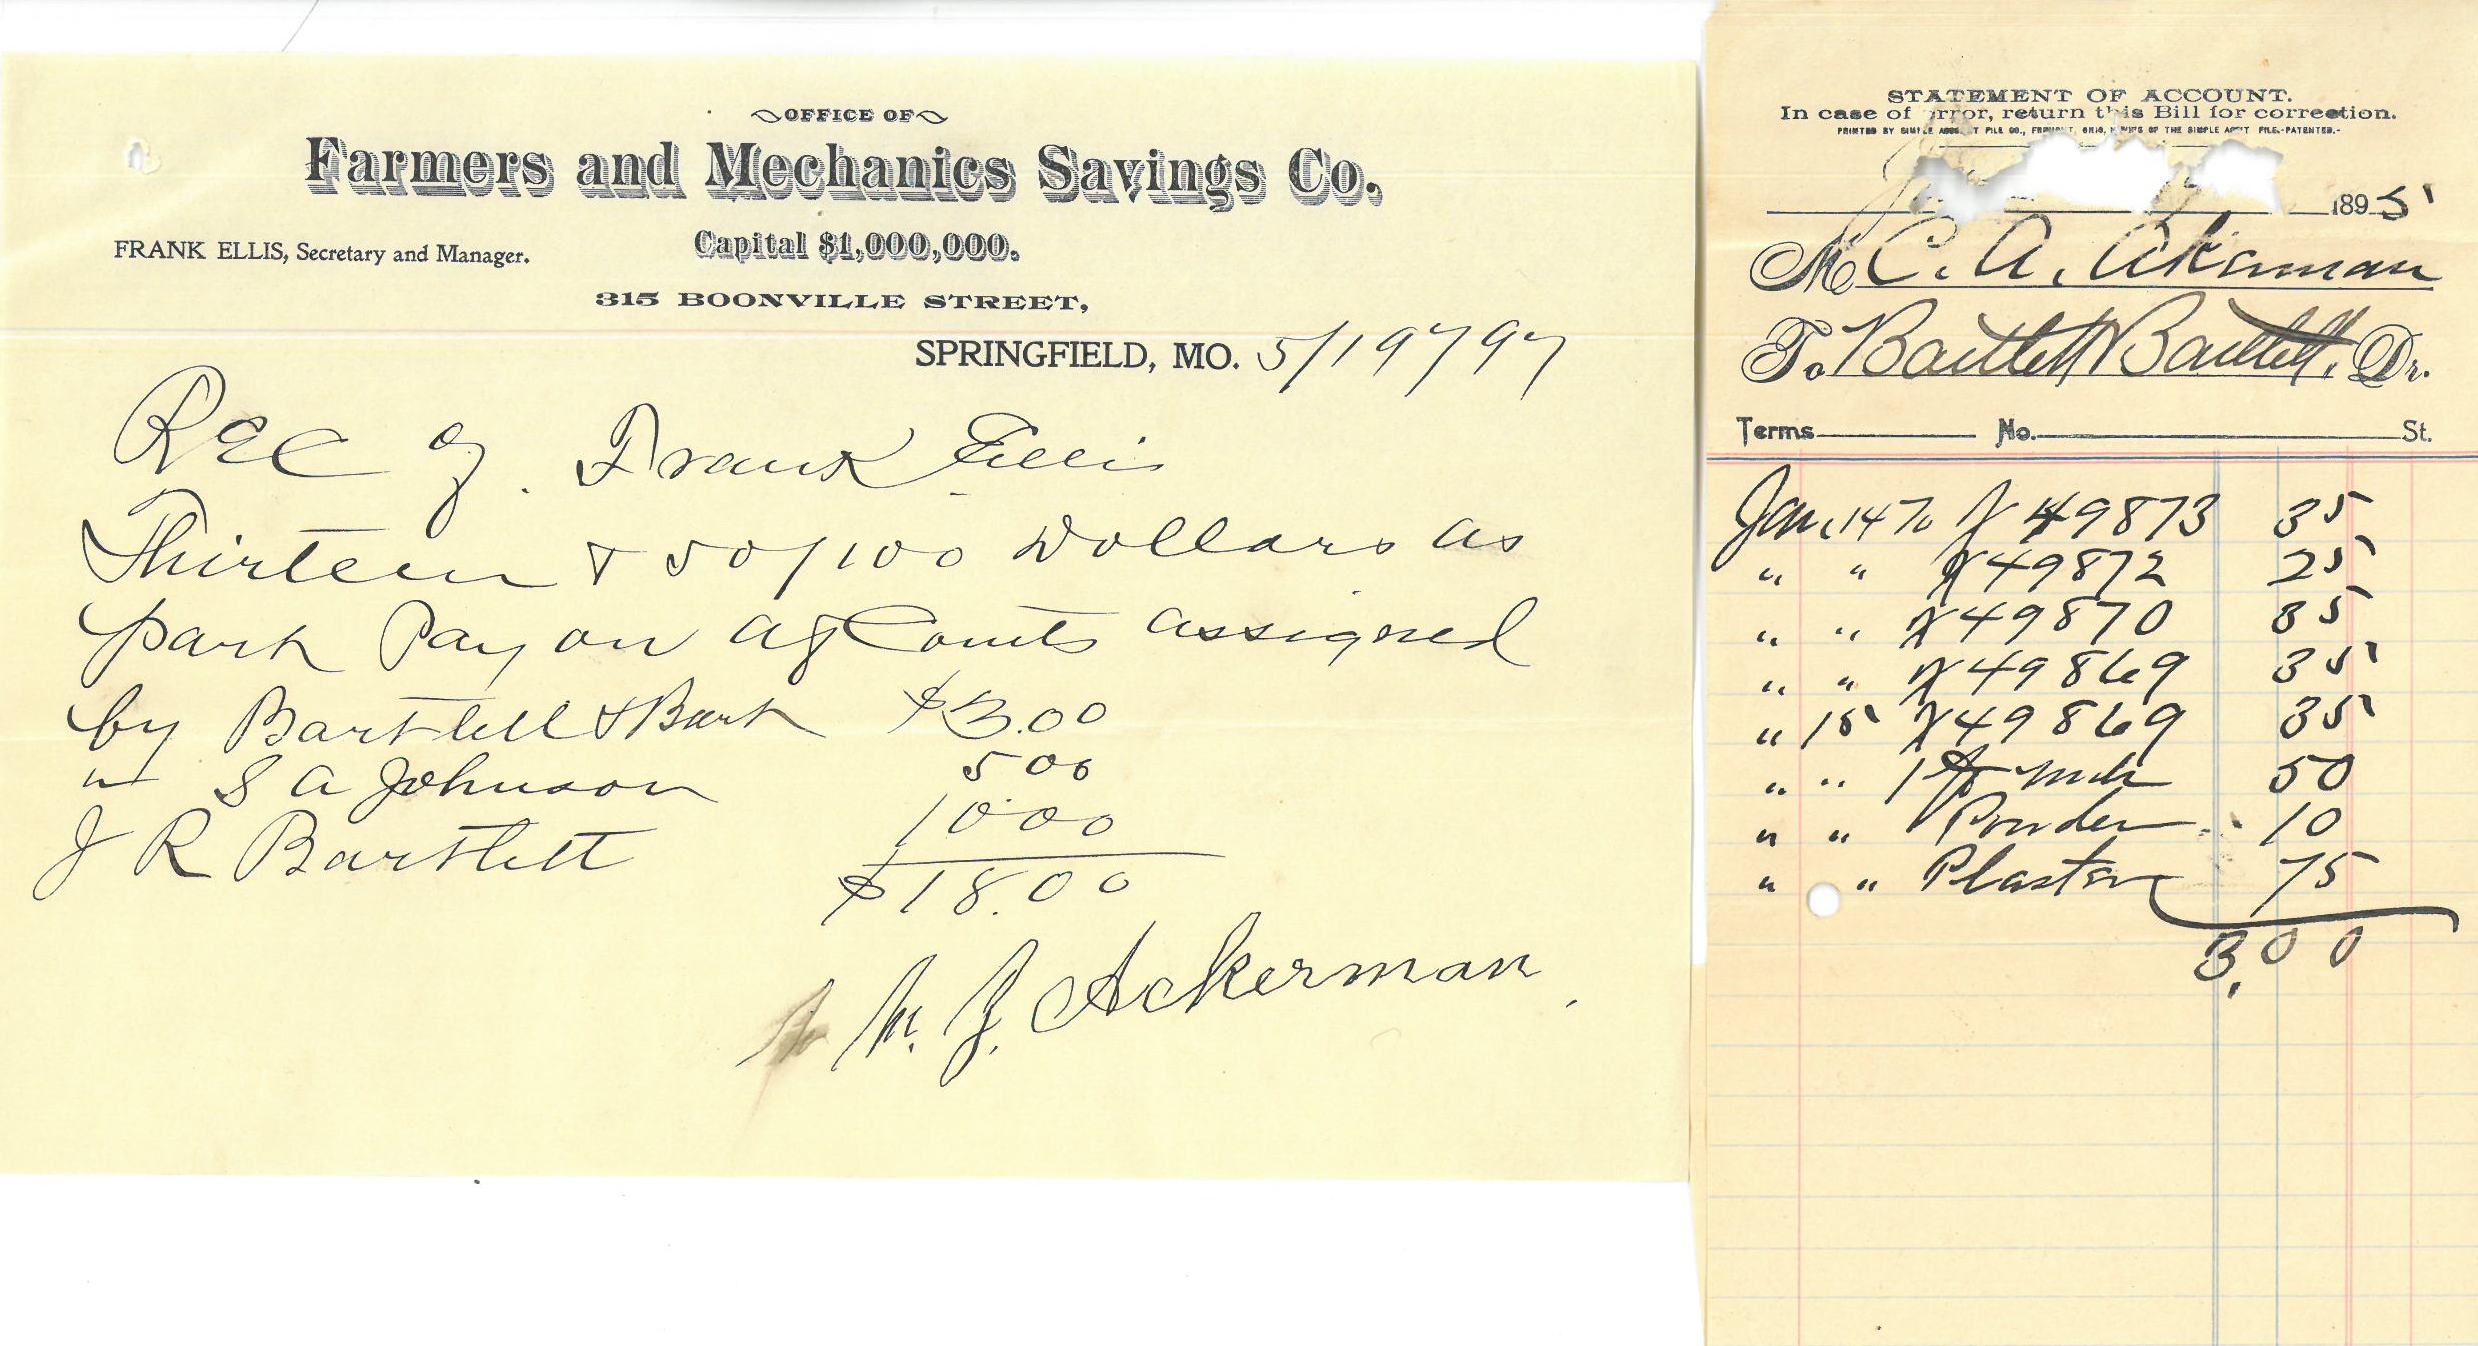 OFFICE OF
Farmers and Mechanics Savings Co.
Capital $1,000,000.
FRANK ELLIS, Secretary and Manager.
315 BOONVILLE STREET,
SPRINGFIELD, MO. 5/19/97
Rec of Frank Ellis
Thirteen & 50/100 Dollars as
part Pay on assigned
by Bartlett & Bart $3.00
" S A Johnson 500
J R Bartlett 1000
$18.00
M. J. Ackerman
STATEMENT OF ACCOUNT.
In case of error, return this Bill for correction.
PRINTED BY SIMPLE ACCOUNT FILE CO., FREMONT, OHIO, OF THE SIMPLE ACC'T FILE.-PATENTED.-
1895
M C. A. Akerman
To Bartlett & Bartlett, Dr.
Terms No. St.
Jan, 14 49873 35
" " 49872 25
" " 49870 35
" " 49869 35
" 15 49869 35
" " 1 50
" " Powder 10
" " Plaster 75
3,00